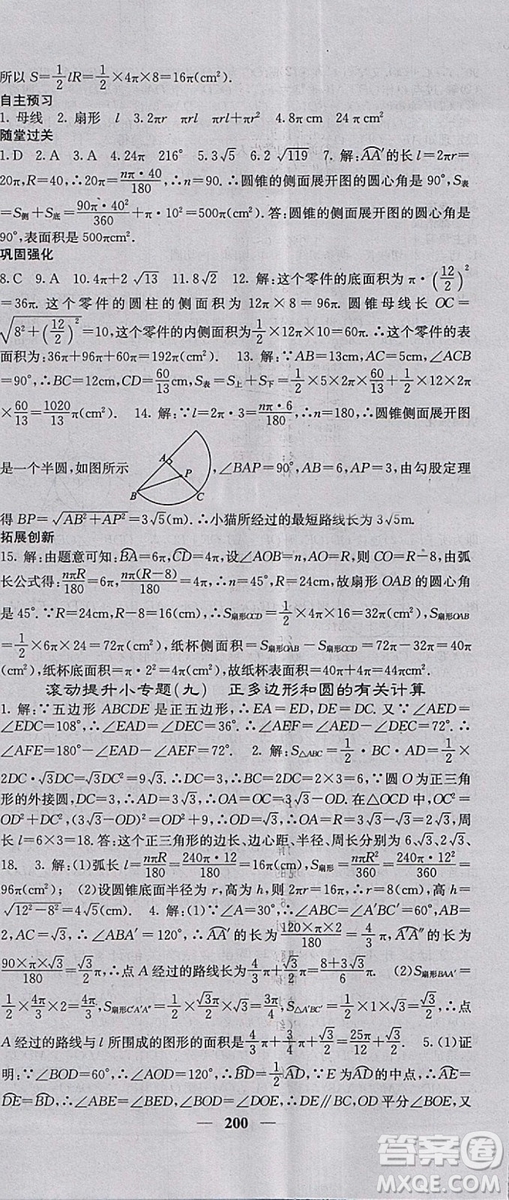 所以 S=1/2 lR=1/2×4π×8=16π(cm²).
自主预习
1. 母线 2. 扇形 l 3. 2πr πrl πrl+πr² 4. 8π 24πcm²
随堂过关
1. D 2. A 3. A 4. 24π 216° 5. 3√5 6. 2√119 7. 解:∵AA′的长 l=2πr=
20π,又∵l=nπ·R/180,∴nπ·40/180=20π,∴n=90.∴圆锥的侧面展开图的圆心角是 90°,S表
=S侧+S底=90π·40²/360+π·10²=500π(cm²).答:圆锥的侧面展开图的圆心角是
90°,表面积是 500πcm².
巩固强化
8. C 9. A 10. 4π+2√13 11. 8√2 12. 解:∵这个零件的底面积为π·(12/2)²
=36π.这个零件的圆柱的侧面积为 8×12π=96π.圆锥母线长 OC=
√(8²+(12/2)²)=10cm,∴这个零件的内侧面积为 1/2×12π×10=60π,∴这个零件的表
面积为 36π+96π+60π=192π(cm²). 13. 解:∵AB=13cm,AC=5cm,∠ACB
=90°,∴BC=12cm,CD=60/13cm,∴S表=S上+S下=1/2×π×5×2×60/13+1/2×12×2π
×60/13=1020/13π(cm²). 14. 解:∵l=2π·3=nπ·6/180,∴n=180,∴圆锥侧面展开图
是一个半圆,如图所示 A B P C ,∠BAP=90°,由勾股定理
得 BP=√(AB²+AP²)=3√5(m).∴小猫所经过的最短路线长为 3√5m.
拓展创新
15. 解:由题意可知:BA=6π,CD=4π,设∠AOB=n°,AO=R,则 CO=R-8,由弧
长公式得:nπR/180=6π,nπ(R-8)/180=4π,解得:n=45°,R=24cm,故扇形 OAB 的圆心角
是 45°.∵R=24cm,R-8=16cm,∴S扇形OCD=1/2×4π×16=32π(cm²),S扇形OAB=
1/2×6π×24=72π(cm²),纸杯侧面积=S扇形OAB-S扇形OCD=72π-32π=40π
(cm²),纸杯底面积=π·2²=4π(cm²),∴纸杯表面积=40π+4π=44π(cm²).
滚动提升小专题(九) 正多边形和圆的有关计算
1. 解:∵五边形 ABCDE 是正五边形,∴EA=ED,DE=DC.又∵∠AED=
∠EDC=108°,∴∠EAD=∠EDA=∠DEC=36°,∴∠AEF=∠AFE=72°,∴
∠AFE=180°-∠EAD-∠AEF=72°. 2. 解:∵S△ABC=1/2·BC·AD=1/2×
2DC·√3DC=√3DC²=27√3,∴DC=3√3,∴BC=6√3.∵圆 O 为正三角
形的外接圆,DC=3√3,∴AD=3√3,∴OA=OC=R,∴在△OCD 中,OC²=
OD²+DC²,(2OD)²=OD²+(3√3)²,∴OD=3,∴OA=OC=R=6,周
长 l=6×3=18.答:这个正三角形的边长、边心距、半径、周长分别为 6√3,3,6,
18. 3. 解:(1)弧长 l=nπR/180=240π·12/180=16π(cm),S扇形=nπR²/360=240π·12²/360=
96π(cm²). (2)设圆锥底面半径为 r,高为 h,则 2πr=16π,r=8(cm),h=
√(12²-8²)=4√5(cm). 4. 解:(1)∵∠A=30°,∠ABC=∠A′BC′=60°,BC=1,∴
AB=2,AC=√3,∴∠ABA′=120°,∴AA′的长为 120π×2/180=4/3π,A′A″的长为
90π×√3/180=√3/2π,∴点 A 经过的路线长为 4/3π+√3/2π. (2)∵S扇形BAA′=
1/2×4π/3×2=4/3π,S扇形C′A′A″=1/2×√3/2π×√3=3/4π,S△A′BC′=1/2×1×√3=√3/2,∴点
A 经过的路线与 l 所围成的图形的面积是 4/3π+3/4π+√3/2=25π/12+√3/2. 5. (1)证
明:∵∠BOD=60°,∴∠AOD=120°.又∵E 为 AD 的中点,∴AE=
DE=BD,∴DE=BD,∠AOE=60°,AE=DE,∴OE⊥AD,OD 平分∠AOD,又
200
答案圈
MXQE.COM